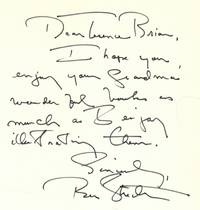 Dear Terence Brian,
I hope you
enjoy your Grandma
wonderful books as
much as I enjoy
illustrating them.
Sincerely,